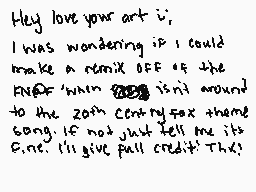 Hey love your art ü,
I was wondering if I could
make a remix off of the
FNAF 'when isn't around
to the 20th century fox theme
song. If not just tell me its
fine. I'll give full credit! Thx!